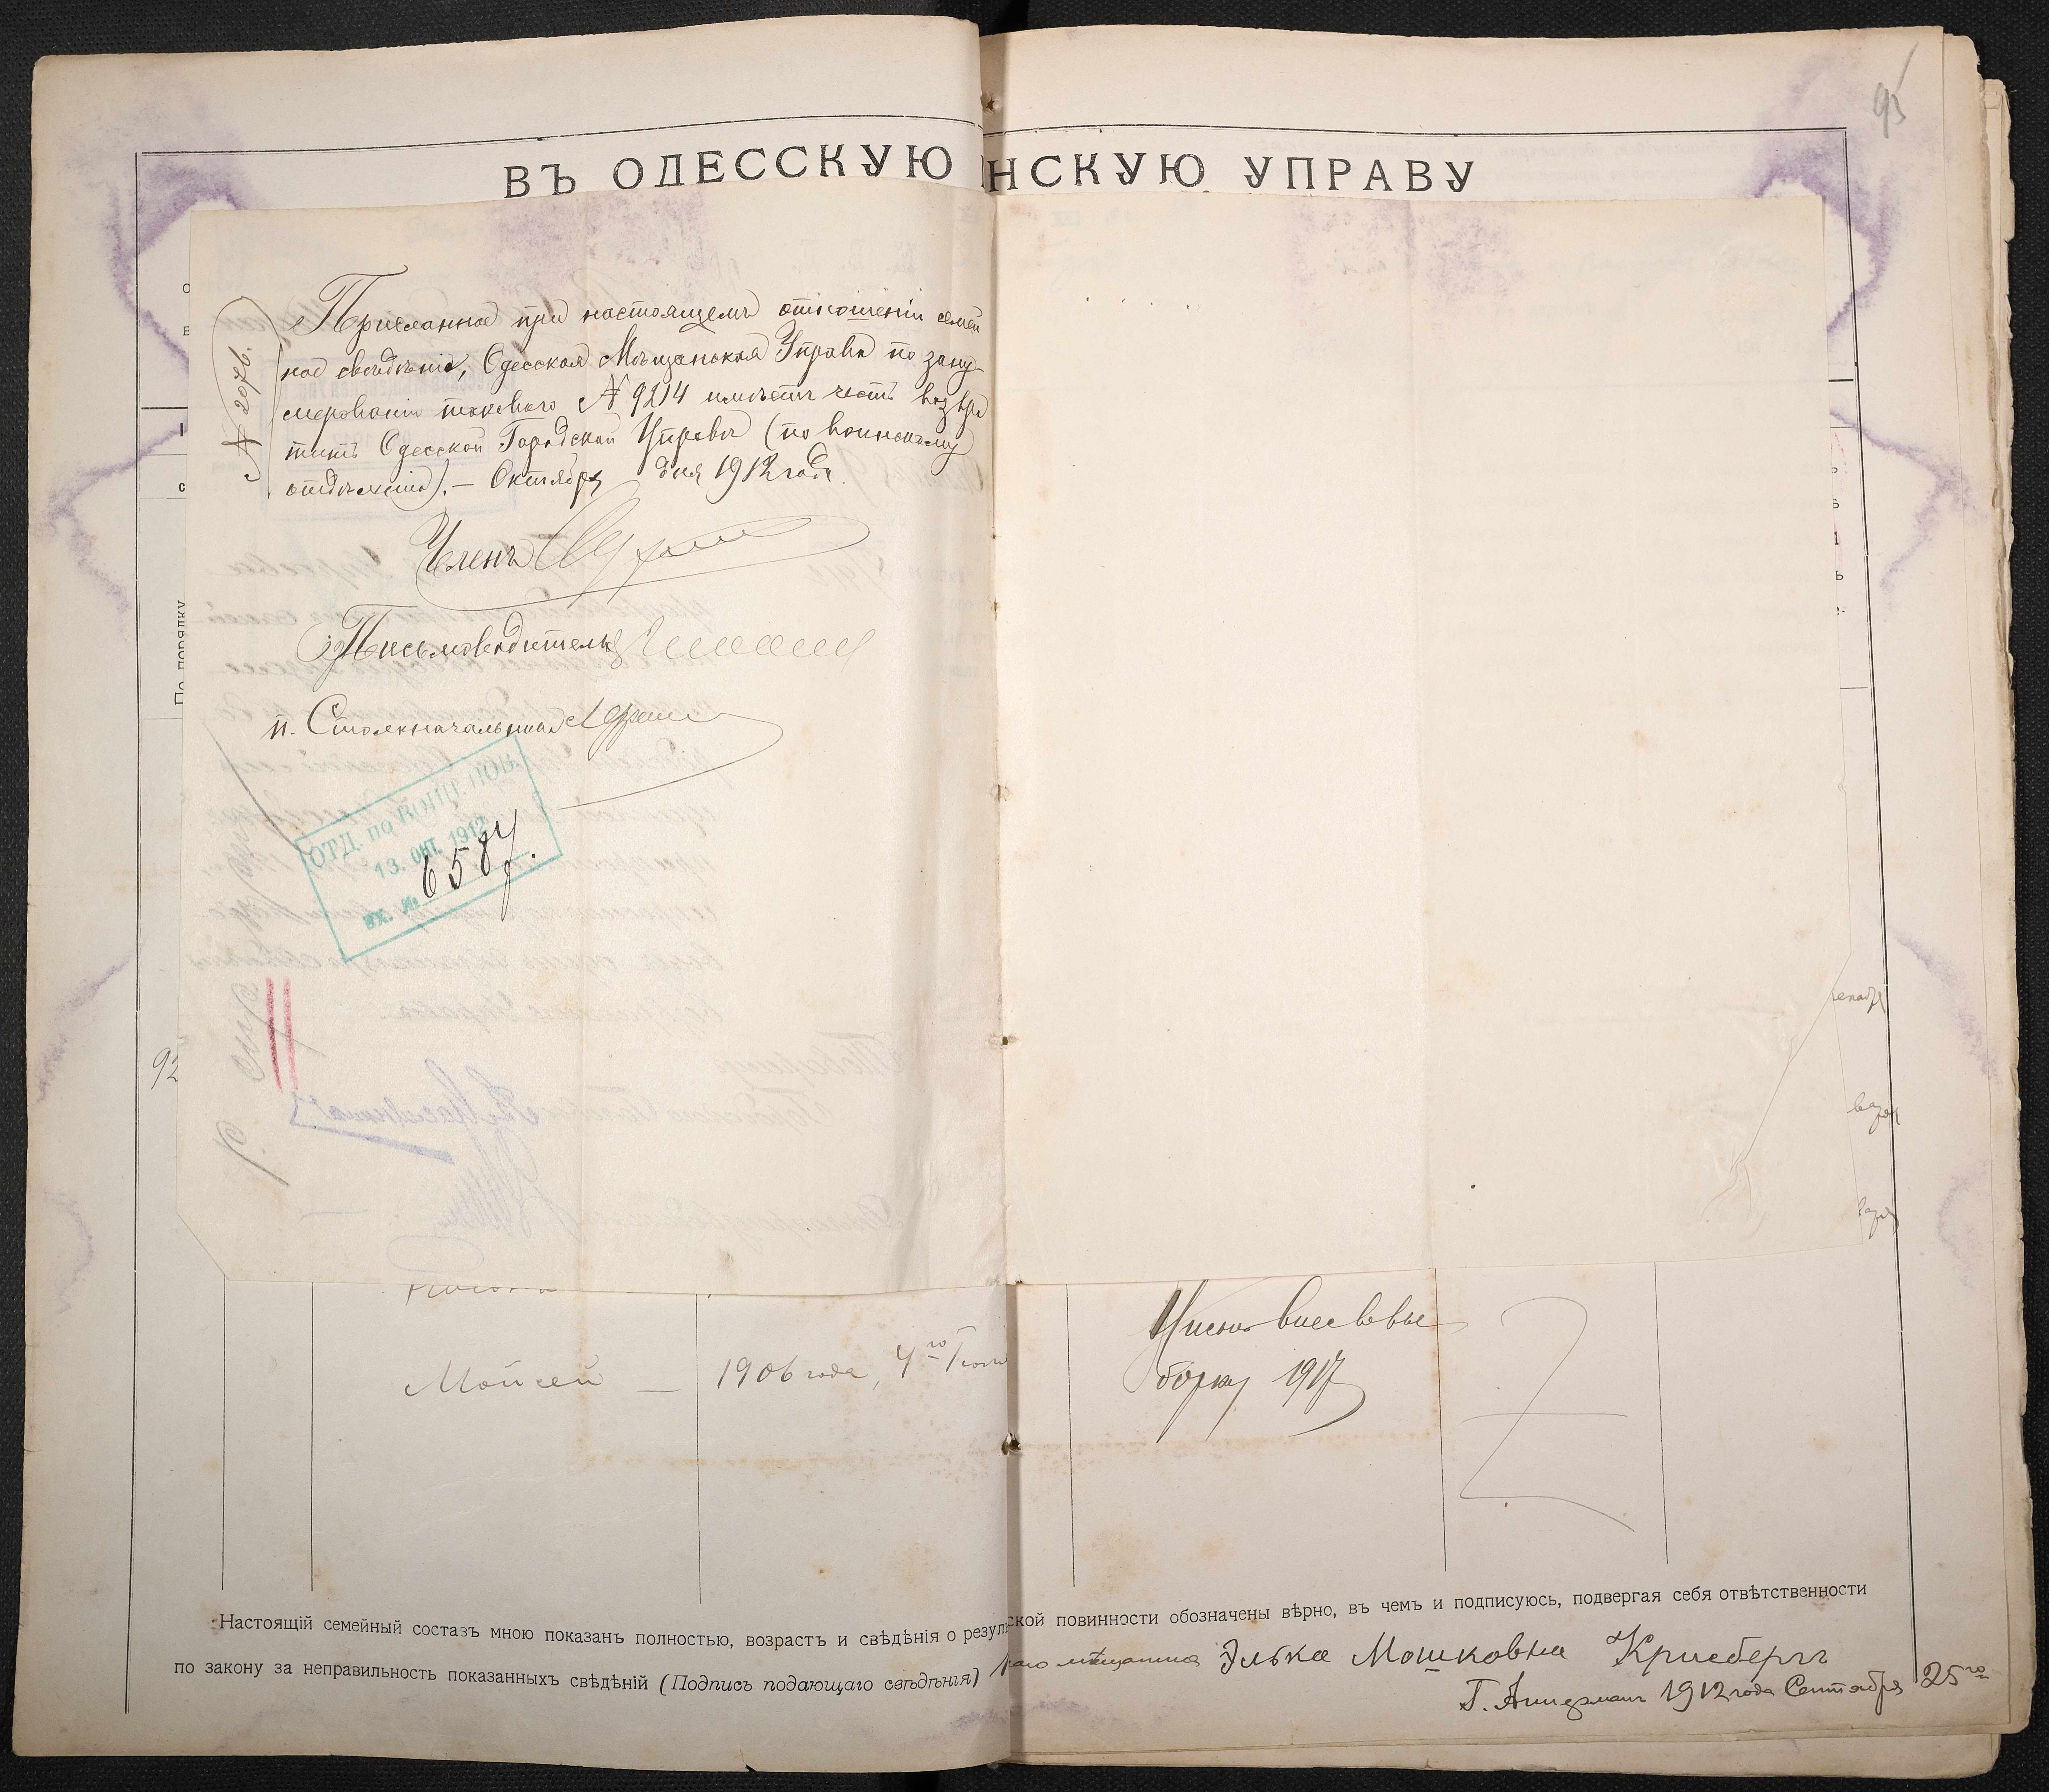 95
ВЪ ОДЕССКУЮ НСКУЮ УПРАВУ
№ 2076.
Присланное при настоящемъ отношеніи семей
ное свѣдѣніе, Одесская Мѣщанская Управа по зану-
мерованіи таковаго № 9214 имѣетъ честь возвра
тить Одесской Городской Управѣ (по воинскому
отдѣленію).— Октября дня 1912 года.
Членъ
Письмоводитель
п. Столоначальника
ОТД. по ВОИН. ПОВ.
13. ОКТ. 1912
вх. № 6587.
По порядку
92
Мойсей — 1906 года, 4го
борку 1917
Настоящій семейный составъ мною показанъ полностью, возрастъ и свѣдѣнія о резуль ской повинности обозначены вѣрно, въ чемъ и подписуюсь, подвергая себя отвѣтственности
по закону за неправильность показанныхъ свѣдѣній (Подпись подающаго свѣдѣнія) мѣщанина Элька Мошковна Крисбергъ
1912 года Сентября 25го